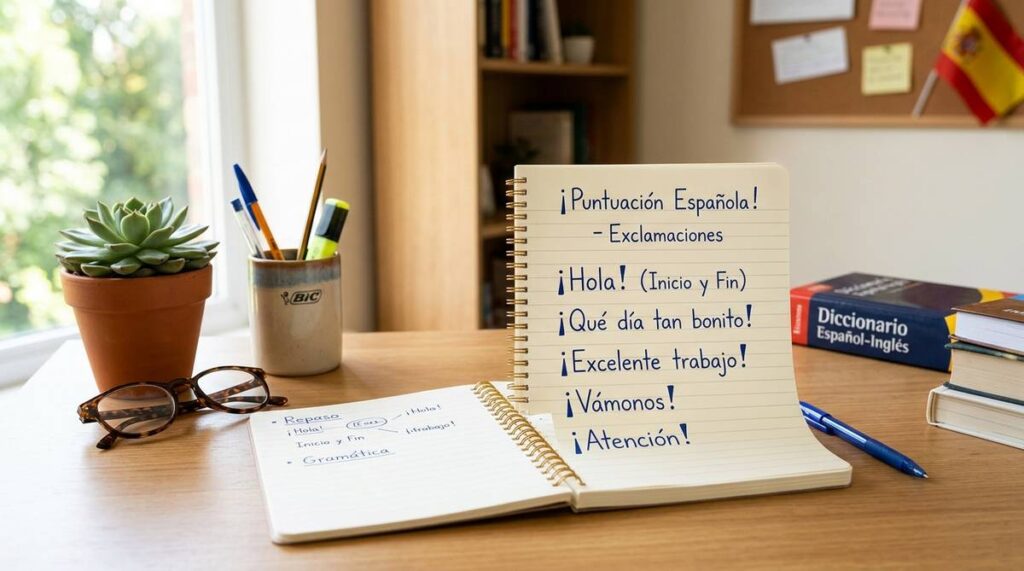 ¡Puntuación Española!
- Exclamaciones
¡Hola! (Inicio y Fin)
¡Qué día tan bonito!
¡Excelente trabajo!
¡Vámonos!
¡Atención!
• Repaso
¡Hola!
¡Hola!
Inicio y Fin
¡trabajo!
• Gramática
BIC
Diccionario
Español-Inglés